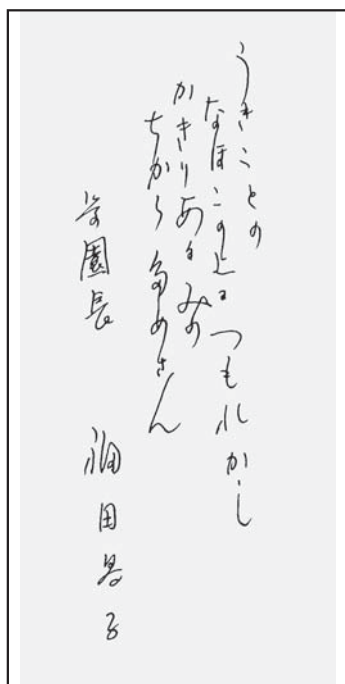 うきことの
なほこの上につもれかし
かきりあるみの
ちからためさん
学園長 福田昌子